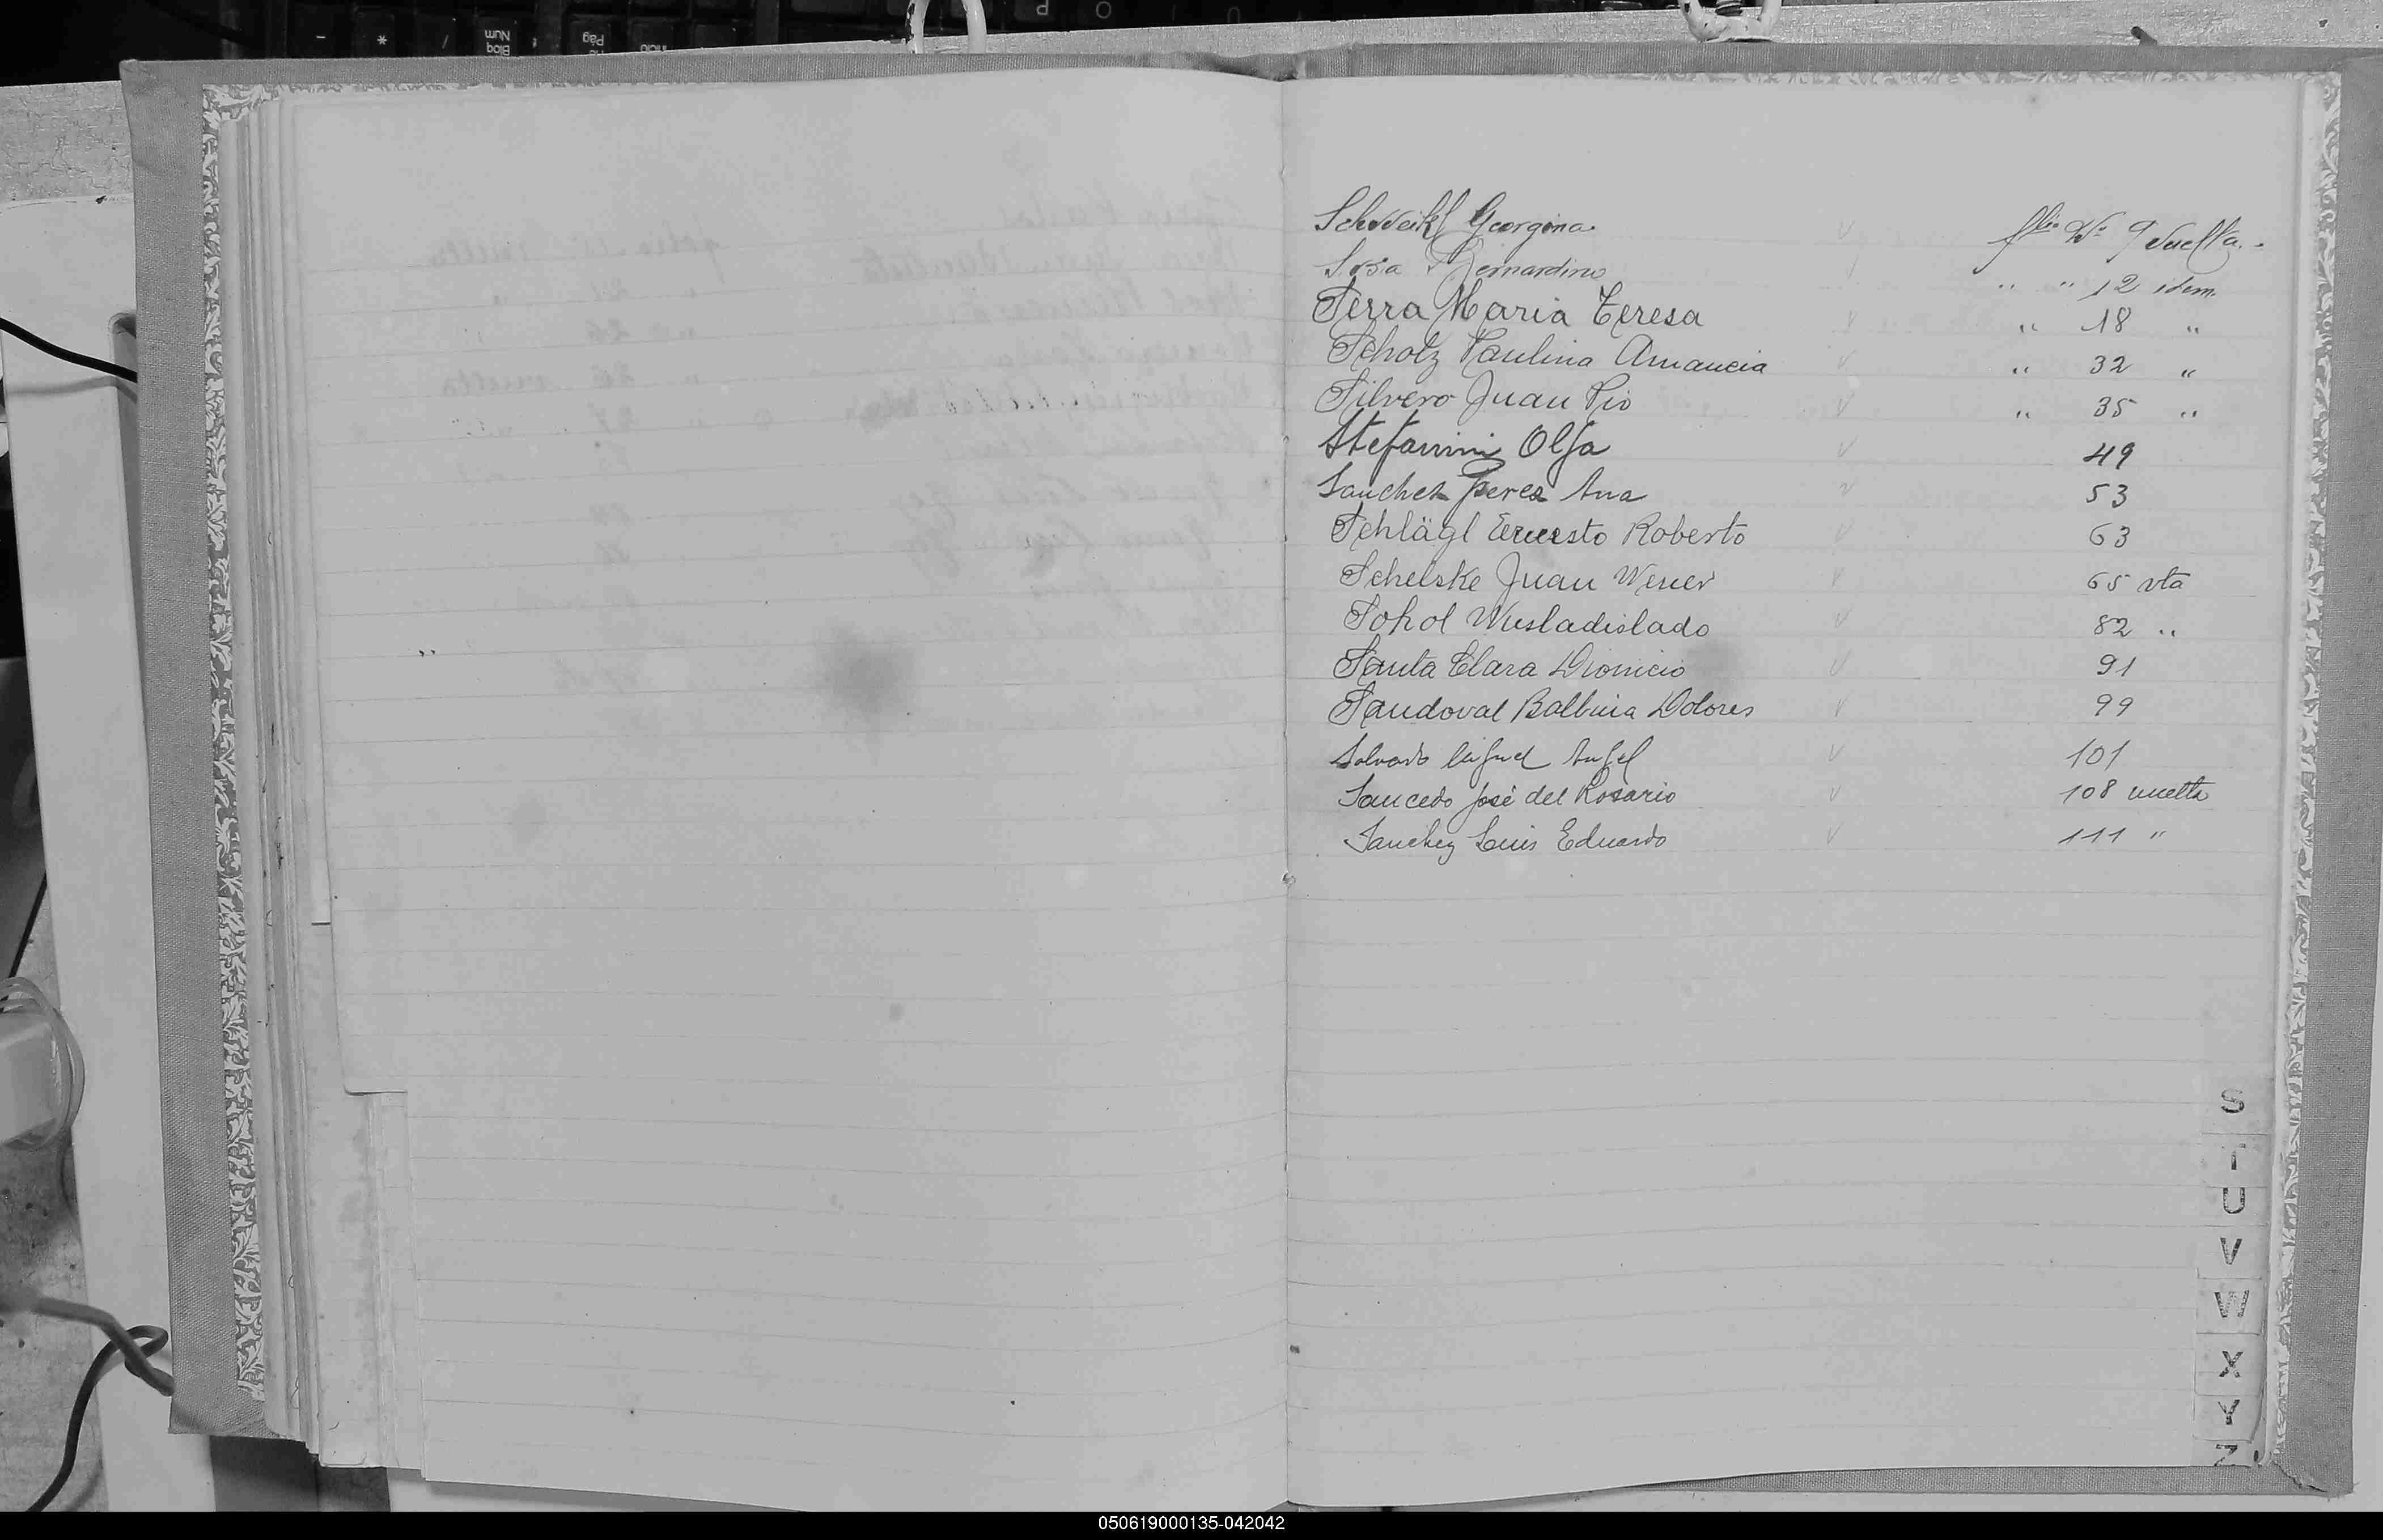 Georgina flio Nº 9 vuelta.
Sosa Bernardino " " 12 idem.
Serra Maria Teresa " 18 "
Scholz Paulina Amancia " 32 "
Silvero Juan Pio " 35 "
Stefanini Olga 49
Sanchez Perez Ana 53
Schlägl Ernesto Roberto 63
Schelske Juan Wener 65 vta
Sohol Wusladislado 82 "
Santa Clara Dionicio 91
Sandoval Balbina Dolores 99
Miguel Angel 101
Saucedo José del Rosario 108 vuelta
Sanchez Luis Eduardo 111 "
S
T
U
V
W
X
Y
Z
050619000135-042042